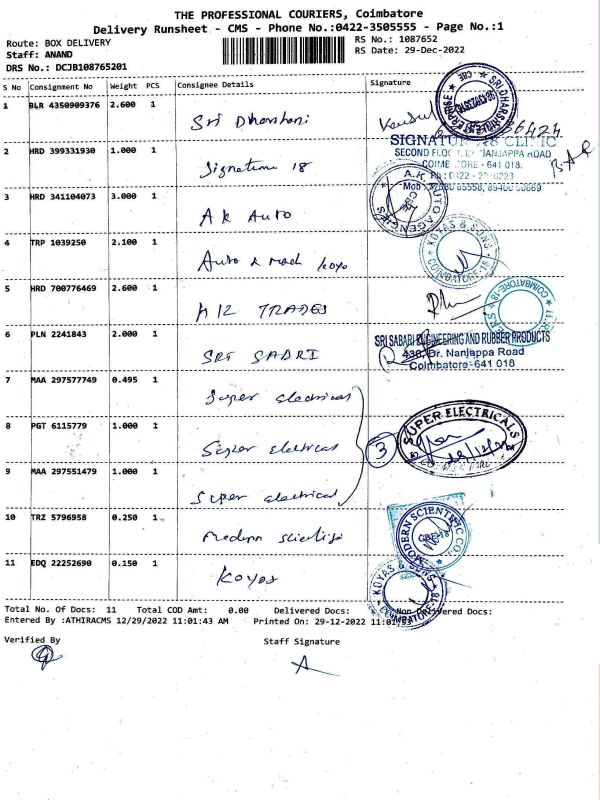 THE PROFESSIONAL COURIERS, Coimbatore
Delivery Runsheet - CMS - Phone No.:0422-3505555 - Page No.:1
Route: BOX DELIVERY RS No.: 1087652
Staff: ANAND RS Date: 29-Dec-2022
DRS No.: DCJB108765201
S No Consignment No Weight PCS Consignee Details Signature
1 BLR 4350909376 2.600 1 Sri Dharshani
2 HRD 399331930 1.000 1 Signature 18
SIGNATURE 18 CLINIC
SECOND FLOOR, NANJAPPA ROAD
COIMBATORE - 641 018.
3 HRD 341104073 3.000 1 AK Auto
A.K AUTO AGENCIES
4 TRP 1039250 2.100 1 Auto & Mach Koyo
KOYAS & SONS COIMBATORE-18
5 HRD 700776469 2.600 1 A12 TRADES
COIMBATORE-18
6 PLN 2241843 2.000 1 SRI SABRI
SRI SABARI ENGINEERING AND RUBBER PRODUCTS
430, Dr. Nanjappa Road
Coimbatore-641 018
7 MAA 297577749 0.495 1 Super electrical
8 PGT 6115779 1.000 1 Super electrical 3
SUPER ELECTRICALS
9 MAA 297551479 1.000 1 Super electrical
10 TRZ 5796958 0.250 1 Modern scientific
MODERN SCIENTIFIC CO.
CBE-18
11 EDQ 22252690 0.150 1 Koyas
KOYAS & SONS COIMBATORE-18
Total No. Of Docs: 11 Total COD Amt: 0.00 Delivered Docs: Non Delivered Docs:
Entered By :ATHIRACMS 12/29/2022 11:01:43 AM Printed On: 29-12-2022 11:01:53
Verified By Staff Signature